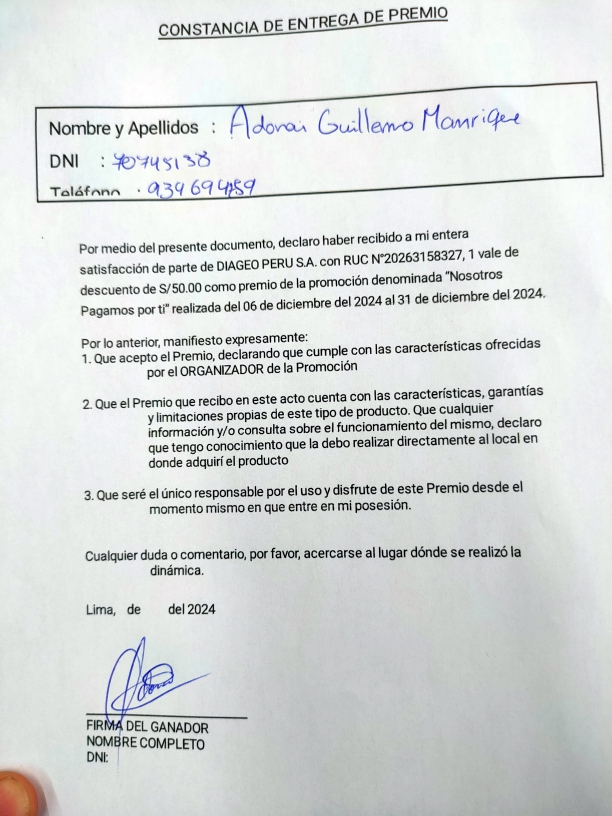 CONSTANCIA DE ENTREGA DE PREMIO
Nombre y Apellidos : Adonai Guillermo Manrique
DNI : 70745138
Teléfono : 939694759
Por medio del presente documento, declaro haber recibido a mi entera
satisfacción de parte de DIAGEO PERU S.A. con RUC N°20263158327, 1 vale de
descuento de S/50.00 como premio de la promoción denominada "Nosotros
Pagamos por ti" realizada del 06 de diciembre del 2024 al 31 de diciembre del 2024.
Por lo anterior, manifiesto expresamente:
1. Que acepto el Premio, declarando que cumple con las características ofrecidas
por el ORGANIZADOR de la Promoción
2. Que el Premio que recibo en este acto cuenta con las características, garantías
y limitaciones propias de este tipo de producto. Que cualquier
información y/o consulta sobre el funcionamiento del mismo, declaro
que tengo conocimiento que la debo realizar directamente al local en
donde adquirí el producto
3. Que seré el único responsable por el uso y disfrute de este Premio desde el
momento mismo en que entre en mi posesión.
Cualquier duda o comentario, por favor, acercarse al lugar dónde se realizó la
dinámica.
Lima, de del 2024
FIRMA DEL GANADOR
NOMBRE COMPLETO
DNI: